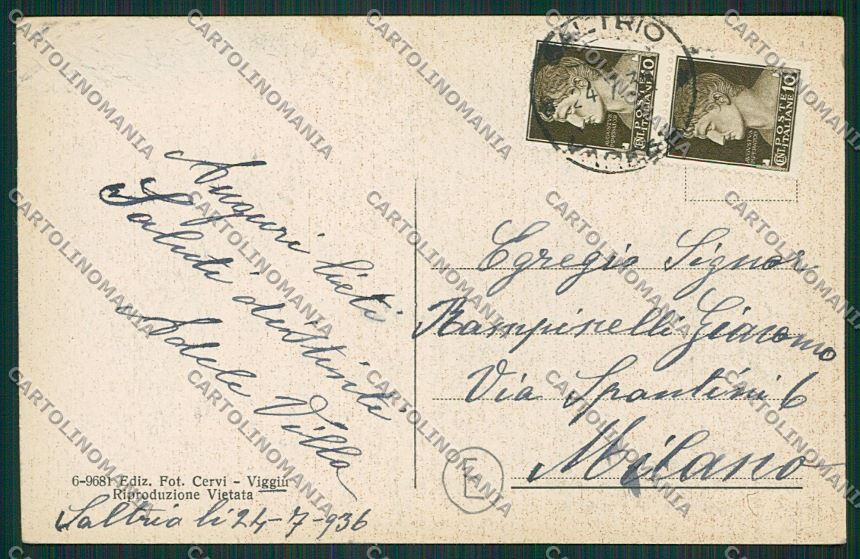 Auguri lieti
Saluti distinti
Adele Villa
6-9681 Ediz. Fot. Cervi - Viggiù
Riproduzione Vietata
Saltrio li 24-7-936
SALTRIO
VARESE
POSTE
ITALIANE
CENT 10
POSTE
ITALIANE
CENT 10
Egregio Signor
Rampinelli Giacomo
Via Spontini 6
Milano
L
CARTOLINOMANIA